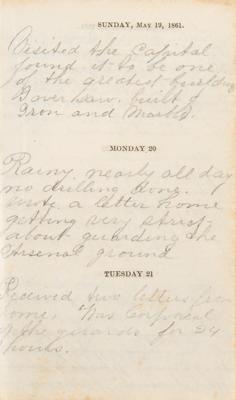 SUNDAY, MAY 19, 1861.
Visited the Capital
found it to be one
of the greatest building
I ever saw. built of
Iron and Marble.
MONDAY 20
Rainy nearly all day
no drilling done.
wrote a letter home
getting very strict
about guarding the
Arsenal ground
TUESDAY 21
Received two letters from
home, Was Corporeal
of the guards for 24
hours.